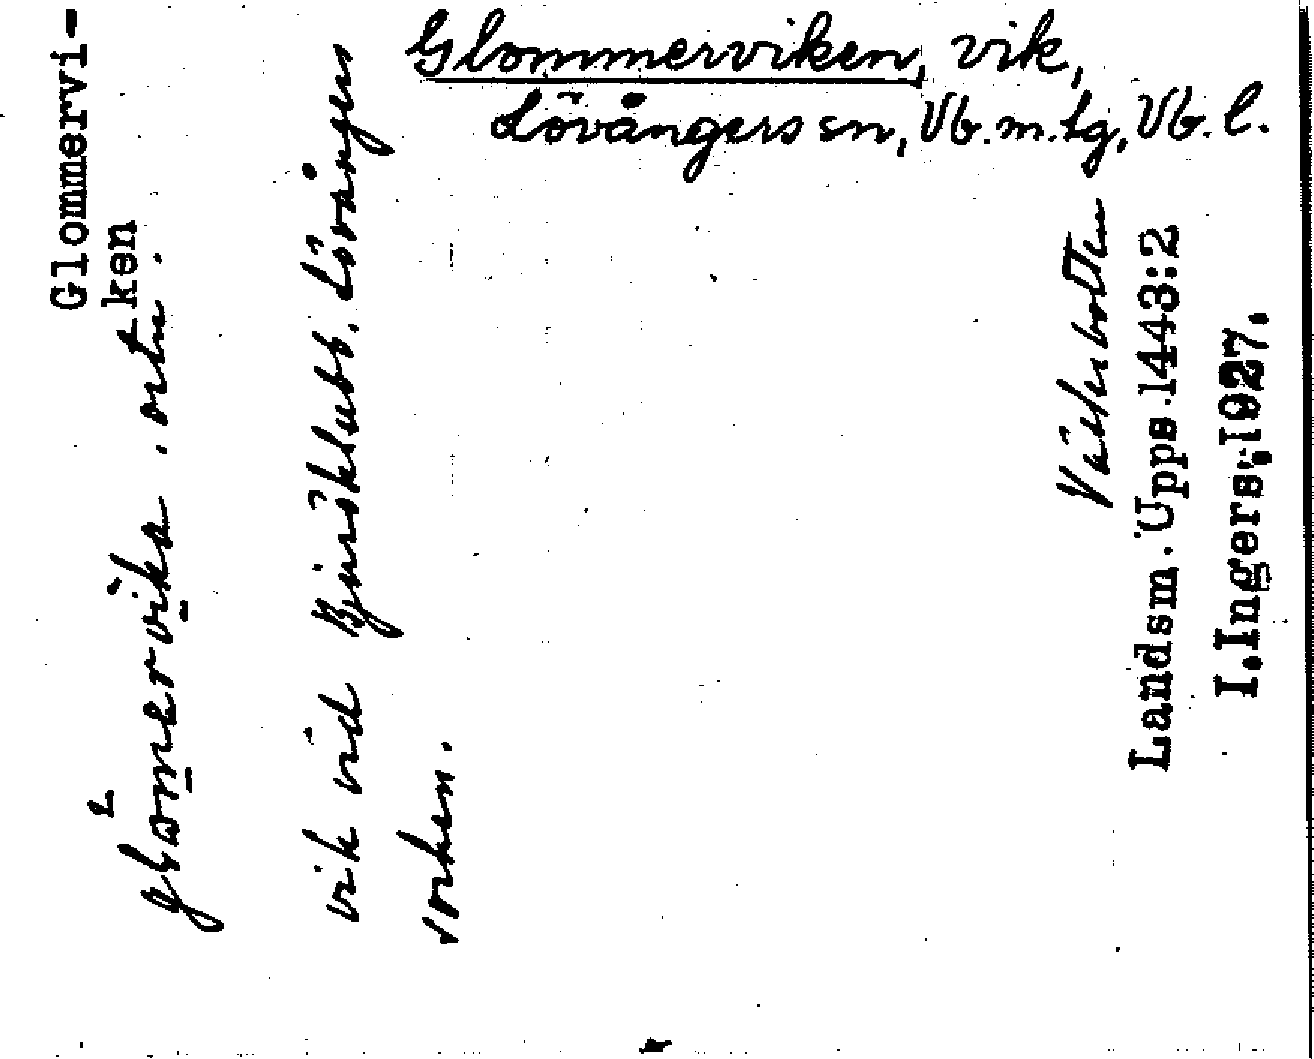 Glommerviken, vik,
Lövångers sn, Vb. m. tg, Vb. l.
Glommervi-
ken
vik vid Bjuröklubb. Lövånger
socken.
Västerbotten
Landsm. Upps. 1443:2
I. Ingers, 1927.